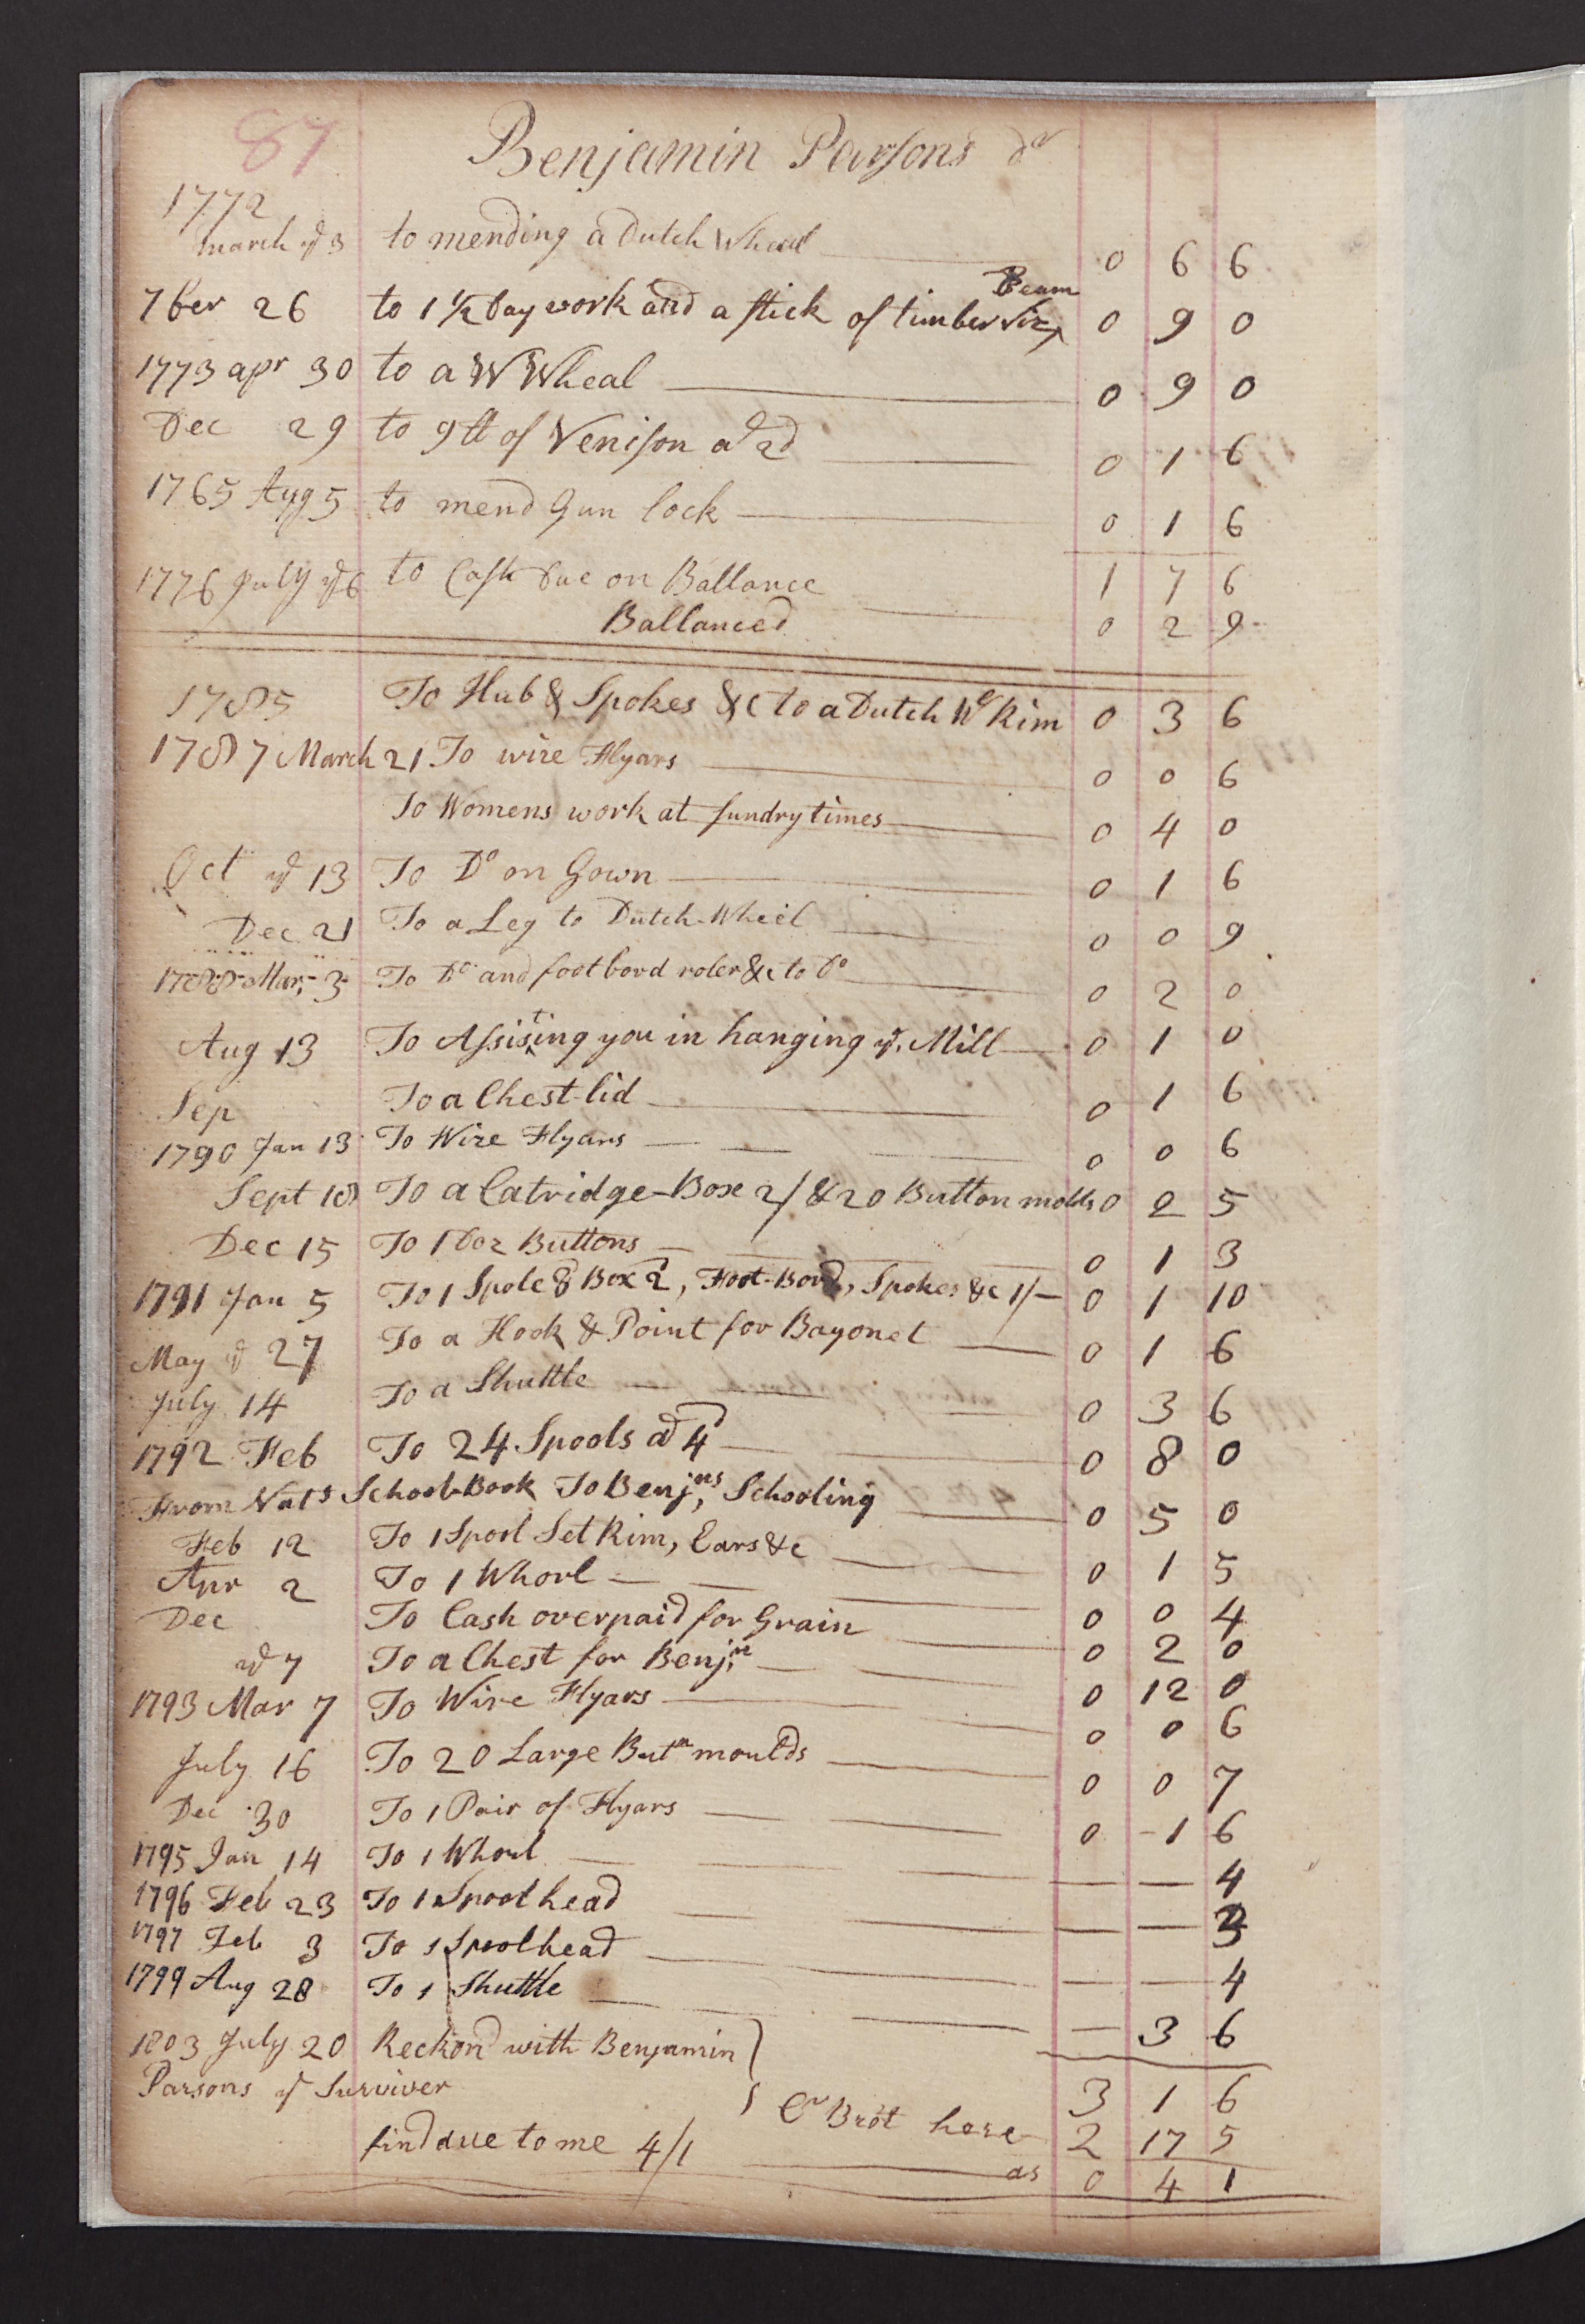 87 Benjamin Parsons dr
1772
march ye 3 to mending a Dutch Wheal 0 6 6
Beam
7ber 26 to 1 1/2 Day work and a stick of timber viz^ 0 9 0
1773 apr 30 to a W Wheal 0 9 0
Dec 29 to 9 lt of Venison at 2d 0 1 6
1765 Aug 5 to mend Gun lock 0 1 6
1 7 6
1776 July ye 6 to Cash Due on Ballance
Ballanced 0 2 9
1785 To Hub & Spokes &c to a Dutch Wl Rim 0 3 6
1787 March 21 To wire Flyars 0 0 6
To Womens work at sundry times 0 4 0
Oct ye 13 To Do on Gown 0 1 6
Dec 21 To a Leg to Dutch-Wheel 0 0 9
1788 Mar, 3 To Do and foot bord roler &c to Do 0 2 0
Aug 13 To Assis^ting you in hanging ye. Mill 0 1 0
Sep To a Chest-lid 0 1 6
1790 Jan 13 To Wire Flyars 0 0 6
Sept 18 To a Catridge-Box 2/ & 20 Button molds 0 2 5
Dec 15 To 1 Doz Buttons 0 1 3
1791 Jan 5 To 1 Spole 8d Box 2d, Foot-Bord, Spokes &c 1/- 0 1 10
May ye 27 To a Hook & Point for Bayonet 0 1 6
July 14 To a Shuttle 0 3 6
1792 Feb To 24 Spools at 4d 0 8 0
From Nats School-Book To Benjns, Schooling 0 5 0
Feb 12 To 1 Spool Set Rim, Ears &c 0 1 5
Apr 2 To 1 Whorl 0 0 4
Dec To Cash overpaid for Grain 0 2 0
ye 7 To a Chest for Benjn 0 12 0
1793 Mar 7 To Wire Flyars 0 0 6
July 16 To 20 Large Butn moulds 0 0 7
Dec 30 To 1 Pair of Flyars 0 -1 6
1795 Jan 14 To 1 Whorl — — 4
1796 Feb 23 To 1 Spool head — — 3
1797 Feb 3 To 1 Spoolhead — — 4
1799 Aug 28 To 1 Shuttle — 3 6
1803 July 20 Reckond with Benjamin }
Parsons ye Surviver 3 1 6
Cr Brot here 2 17 5
find due to me 4/1 as 0 4 1